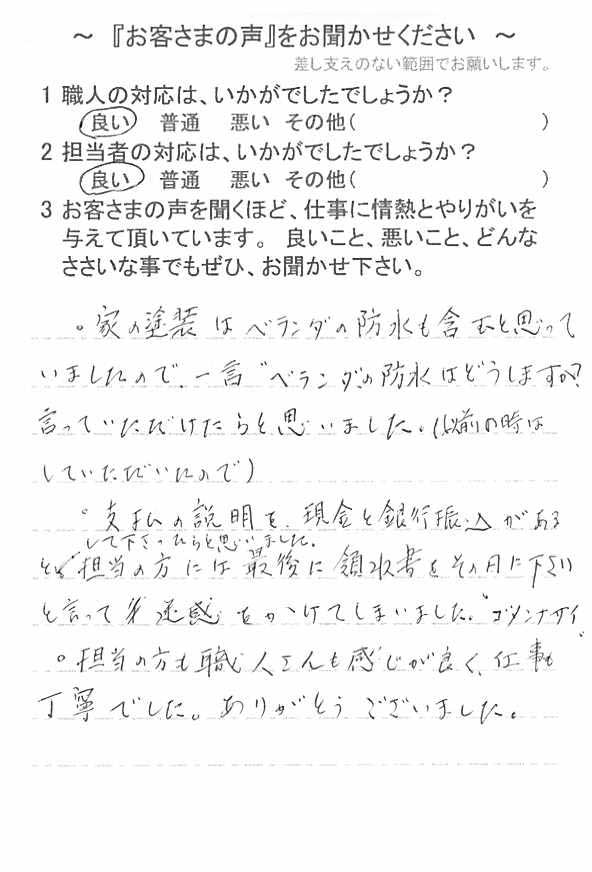 ～ 『お客さまの声』をお聞かせください ～
差し支えのない範囲でお願いします。
1 職人の対応は、いかがでしたでしょうか？
良い 普通 悪い その他( )
2 担当者の対応は、いかがでしたでしょうか？
良い 普通 悪い その他( )
3 お客さまの声を聞くほど、仕事に情熱とやりがいを
与えて頂いています。 良いこと、悪いこと、どんな
ささいな事でもぜひ、お聞かせ下さい。
。家の塗装はベランダの防水も含むと思って
いましたので、一言"ベランダの防水はどうしますか?
言っていただけたらと思いました。(以前の時は
していただいたので)
。支払の説明を、現金と銀行振込がある
して下さったらと思いました。
と 担当の方には最後に領収書をその月に下さい
と言って 迷惑をかけてしまいました。"ゴメンナサイ"
。担当の方も職人さんも感じが良く、仕事も
丁寧でした。ありがとうございました。